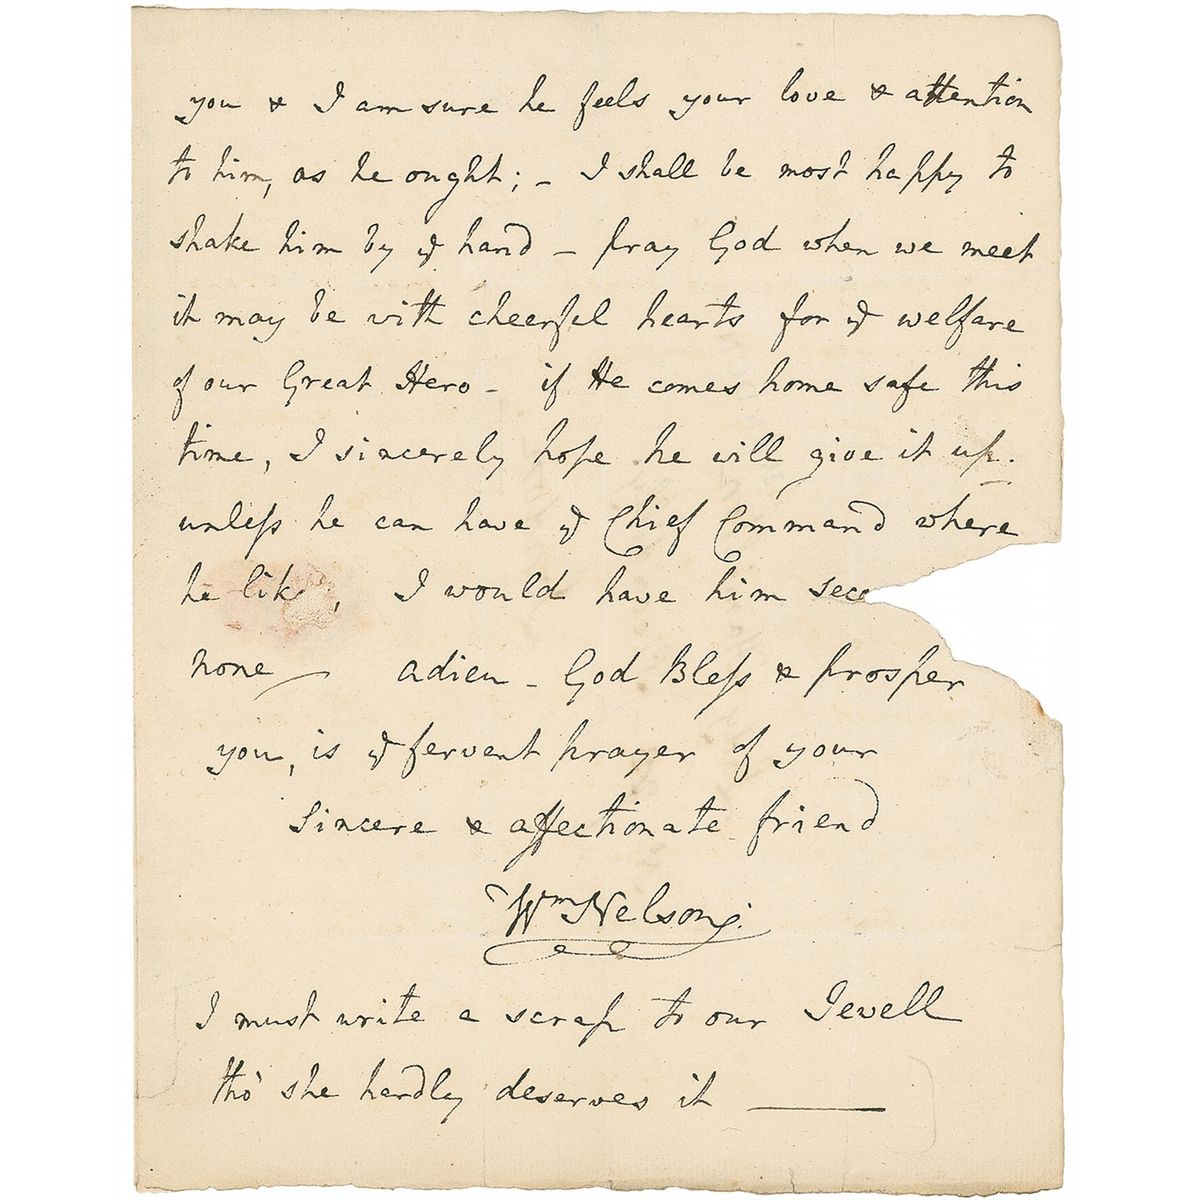 you & I am sure he feels your love & attention
to him, as he ought; - I shall be most happy to
shake him by ye hand - pray God when we meet
it may be with cheerful hearts for ye welfare
of our Great Hero - if He comes home safe this
time, I sincerely hope he will give it up.
unless he can have ye Chief Command where
he like, I would have him seco
none - adieu - God Bless & prosper
you, is ye fervent prayer of your
Sincere & affectionate friend
Wm Nelson.
I must write a scrap to our Jewell
tho' she hardly deserves it —